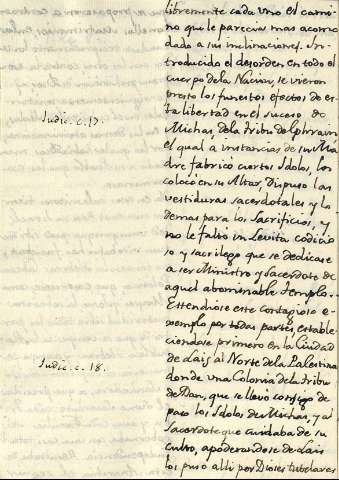 libremente cada uno el cami-
no que le parecia mas acomo
dado a sus inclinaciones. In-
troducido el desorden en todo el
cuerpo de la Nacion, se vieron
presto los funestos efectos de es
ta libertad en el suceso de
Judic. c. 17.
Michas, de la tribu de Ephraim
el qual a instancias de su Ma
dre fabricó ciertos Idolos, los
colocó en su Altar, dispuso las
vestiduras sacerdotales y lo
demas para los Sacrificios, y
no le faltó un Levita codicio
so y sacrilego que se dedicase
a ser Ministro y Sacerdote de
aquel abominable templo.
Estendiose este contagioso e-
xemplo por todas partes, estable-
ciendose primero en la Ciudad
Judic. c. 18.
de Lais al Norte de la Palestina
donde una Colonia de la tribu
de Dan, que se llevo consigo de
paso los Idolos de Michas, y al
Sacerdote que cuidaba de su
culto, apoderandose de Lais
los puso alli por Dioses tutelares